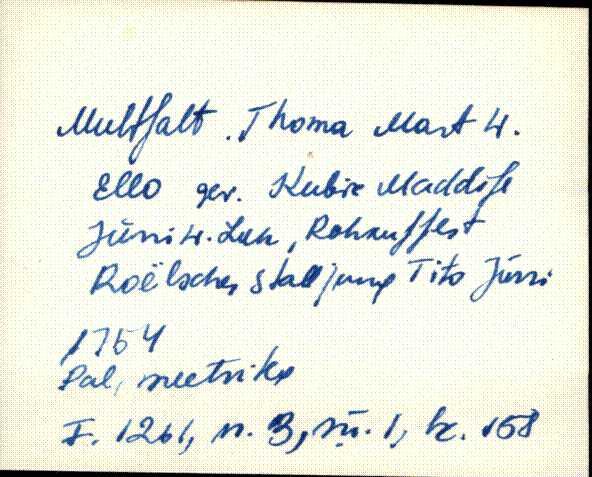 Multsalt. Thoma Mart W.
Ello gev. Kubie Maddisse
Jürri W. Leen, Rohausfest
Roëlscher Stalljung Tito Jürri
1754
Pal, meetrika
F. 1261, n. 3, sü. 1, lk. 158